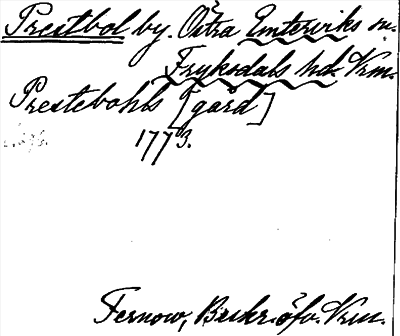 Prestbol by. Östra Emterviks sn.
Fryksdals hd. Vrm.
Prestebohls [gård]
1773.
Fernow, Beskr. öfv. Vrm.